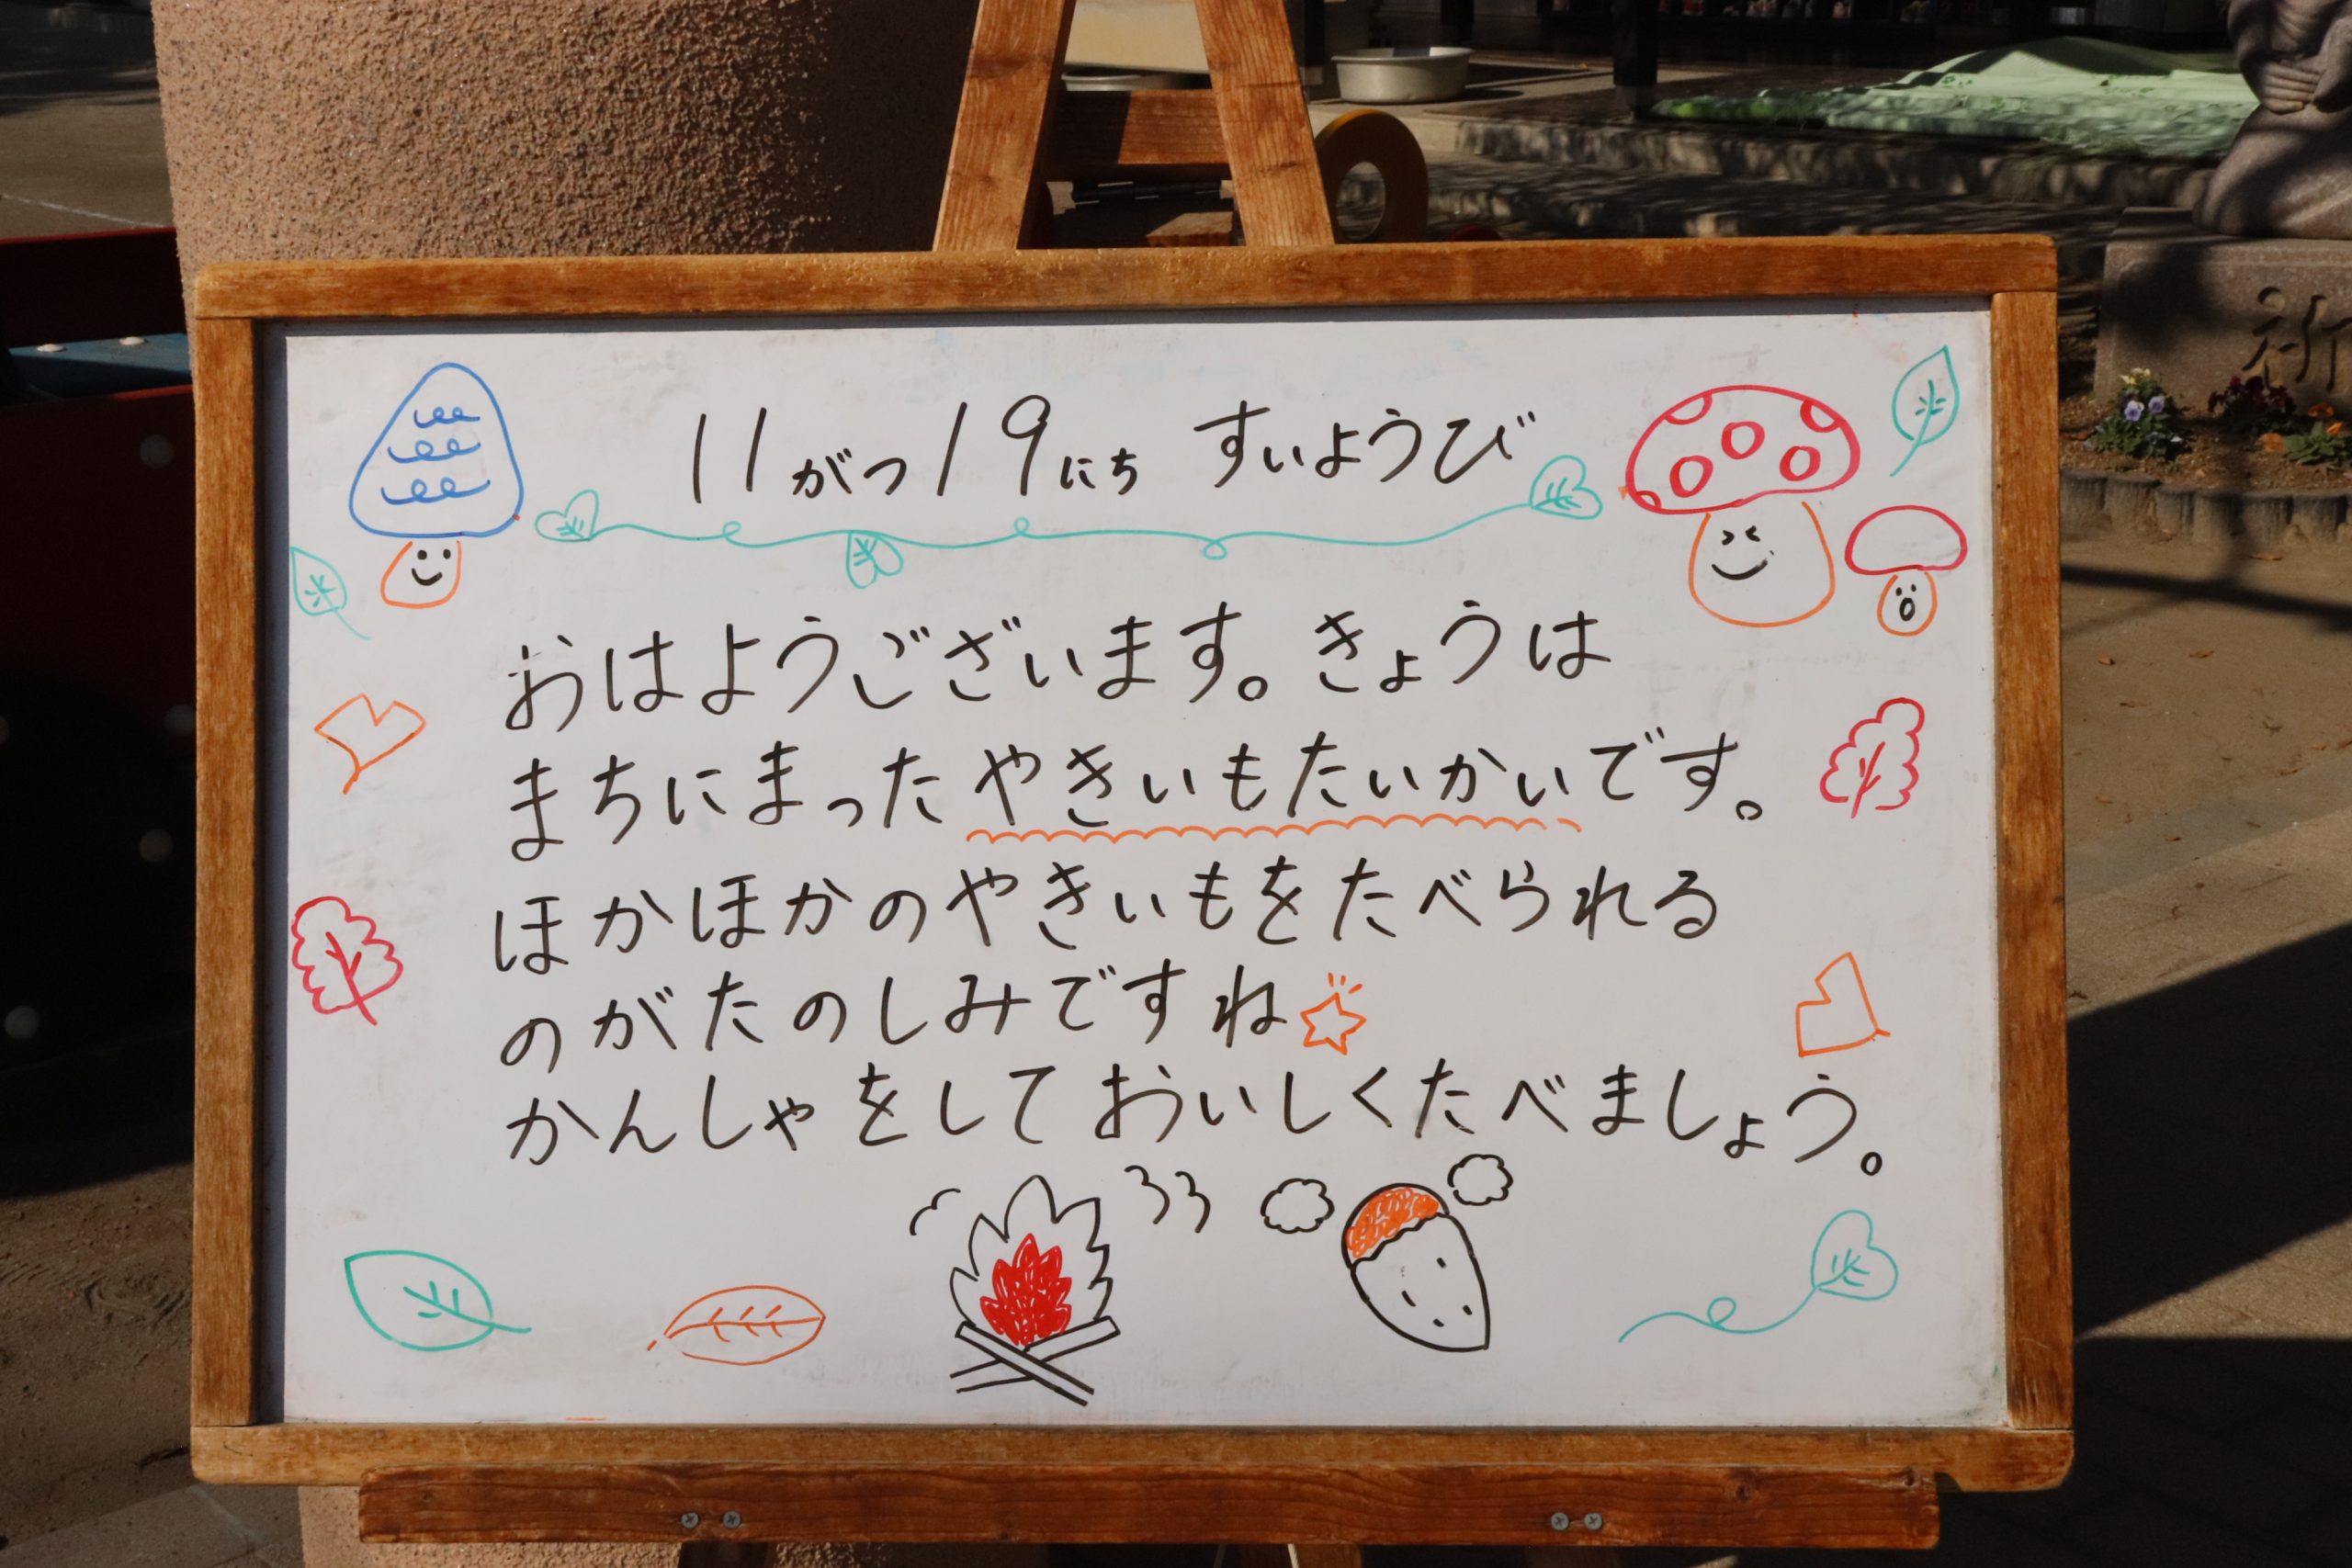 11がつ19にち すいようび
おはようございます。きょうは
まちにまったやきいもたいかいです。
ほかほかのやきいもをたべられる
のがたのしみですね
かんしゃをしておいしくたべましょう。